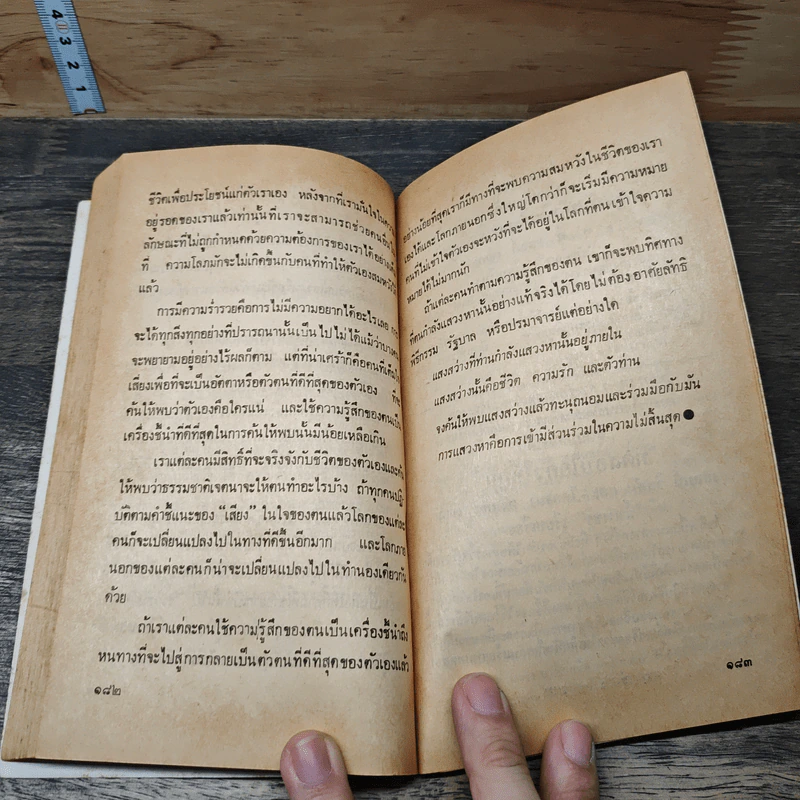 4
3
2
1
ชีวิตเพื่อประโยชน์แก่ตัวเราเอง หลังจากที่เรามั่นใจในความ
อยู่รอดของเราแล้วเท่านั้นที่เราจะสามารถช่วยคนอื่น
ลักษณะที่ไม่ถูกกำหนดด้วยความต้องการของเราได้อย่าง
ที่ ความโลภมักจะไม่เกิดขึ้นกับคนที่ทำให้ตัวเองสมหวัง
แล้ว
การมีความร่ำรวยคือการไม่มีความอยากได้อะไรเลย
จะได้ทุกสิ่งทุกอย่างที่ปรารถนานั้นเป็นไปไม่ได้แม้ว่าบาง
จะพยายามอยู่อย่างไรผลก็ตาม แต่ที่น่าเศร้าก็คือคนที่
เสียงเพื่อที่จะเป็นอัตตาหรือตัวตนที่ดีที่สุดของตัวเอง
ค้นให้พบว่าตัวเองคือใครแน่ และใช้ความรู้สึกของตนเป็น
เครื่องชี้นำที่ดีที่สุดในการค้นให้พบนั้นมีน้อยเหลือเกิน
เราแต่ละคนมีสิทธิ์ที่จะจริงจังกับชีวิตของตัวเองและค้น
ให้พบว่าธรรมชาติเจตนาจะให้ตนทำอะไรบ้าง ถ้าทุกคนปฏิ
บัติตามคำชี้แนะของ “เสียง” ในใจของตนแล้วโลกของแต่ละ
คนก็จะเปลี่ยนแปลงไปในทางที่ดีขึ้นอีกมาก และโลกภาย
นอกของแต่ละคนก็น่าจะเปลี่ยนแปลงไปในทำนองเดียวกัน
ด้วย
ถ้าเราแต่ละคนใช้ความรู้สึกของตนเป็นเครื่องชี้นำถึง
หนทางที่จะไปสู่การกลายเป็นตัวตนที่ดีที่สุดของตัวเองแล้ว
๑๘๒
อย่างน้อยที่สุดเราก็มีทางที่จะพบความสมหวังในชีวิตของเรา
เองได้และโลกภายนอกซึ่งใหญ่โตกว่าก็จะเริ่มมีความหมาย
คนที่ไม่เข้าใจตัวเองจะหวังที่จะได้อยู่ในโลกที่ตนเข้าใจความ
หมายได้ไม่มากนัก
ถ้าแต่ละคนทำตามความรู้สึกของตน เขาก็จะพบทิศทาง
ที่ตนกำลังแสวงหานั้นอย่างแท้จริงได้โดยไม่ต้องอาศัยลัทธิ
พิธีกรรม รัฐบาล หรือปรมาจารย์แต่อย่างใด
แสงสว่างที่ท่านกำลังแสวงหานั้นอยู่ภายใน
แสงสว่างนั้นคือชีวิต ความรัก และตัวท่าน
จงค้นให้พบแสงสว่างแล้วทะนุถนอมและร่วมมือกับมัน
การแสวงหาคือการเข้ามีส่วนร่วมในความไม่สิ้นสุด ●
๑๘๓